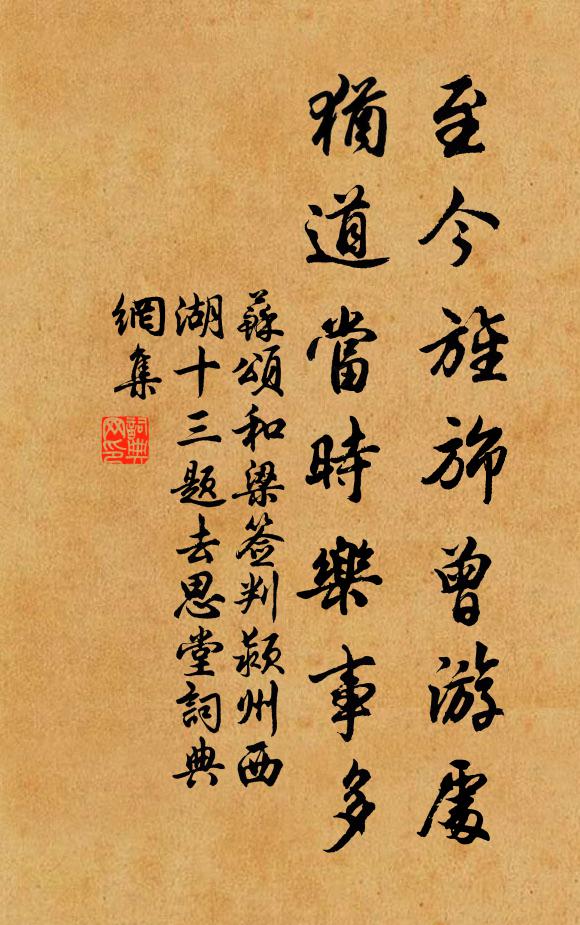 至今旌斾曾游處
猶道當時樂事多
蘇頌和梁签判颍州西
湖十三题去思堂詞典
網集
詞典网印